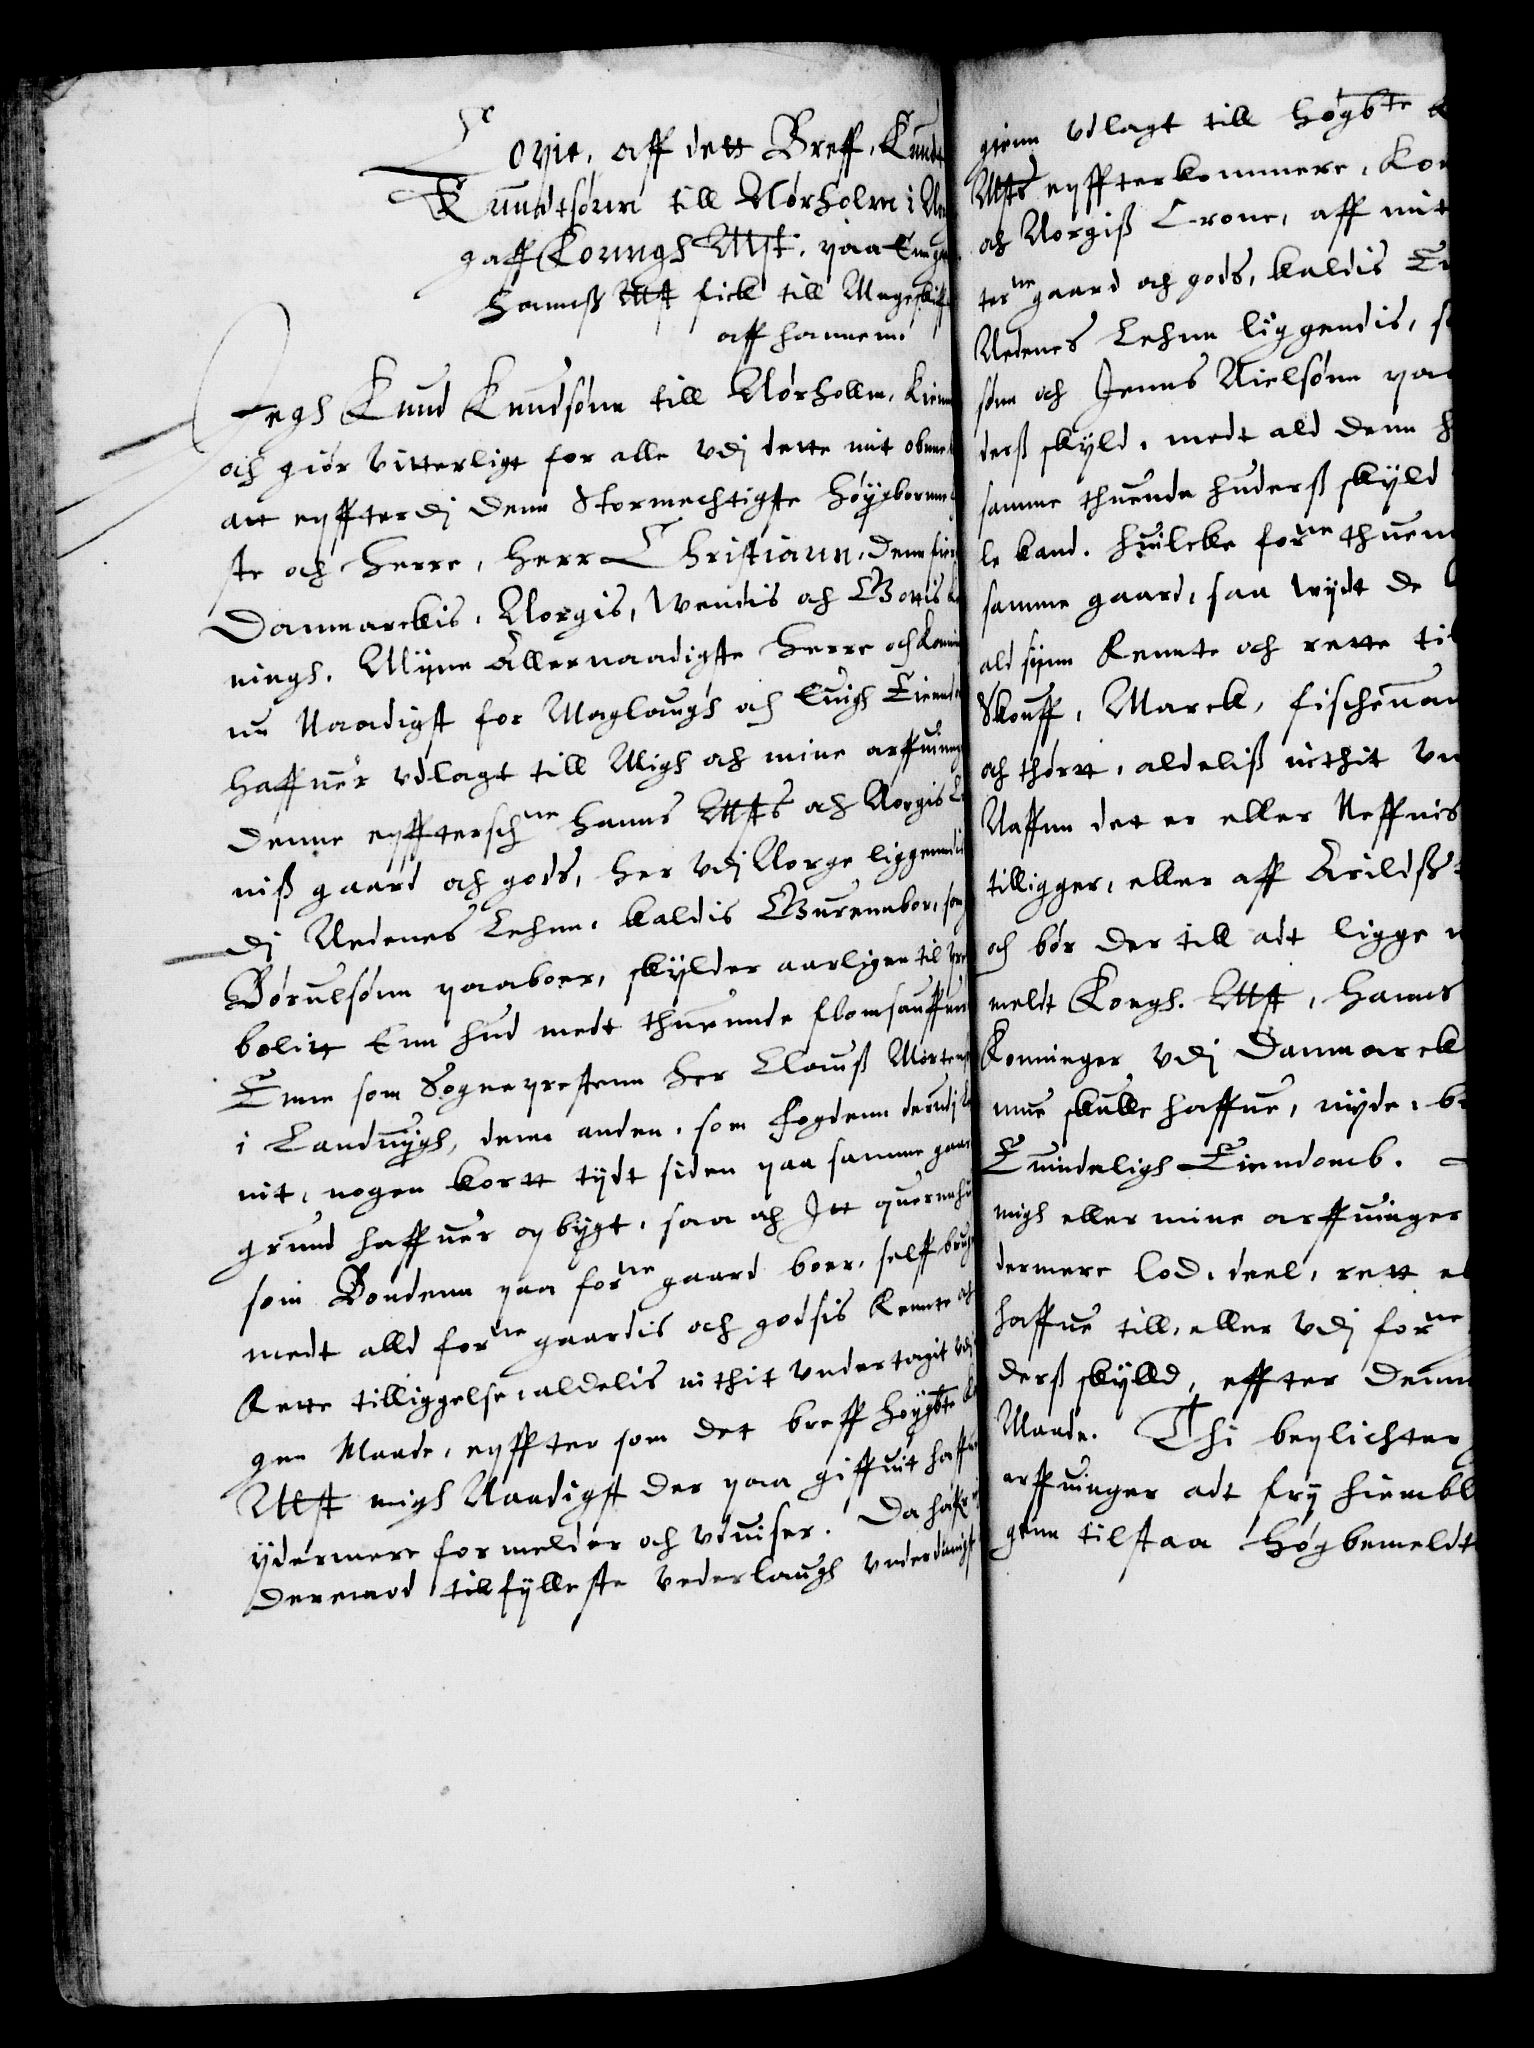 Copie, aff dett Breff, Knud
Knudtsønn till Nørholm i
gaff Konngh Mtt. paa Enn
Hanns Mtt fick till Mageskiffte
aff hannem.
Jegh Knud Knudsønn till Nørhollm, kiennis
och giør vitterligt for alle vdj dette mit obne
att epffterdj denn Stormechtigste Høygborne
ste och Herre, Herr Christiann, denn fierde
Danmarckis, Norgis, Wendis och Gottis
ningh, Myne Allernaadigste Herre och Konning
nu Naadigst for Maglaugh och Euigh Eiendom
haffuer vdlagt till Migh och mine arffuinge
denne epfftersch ne Hanns Mtts och Norgis
niß gaard och gods, her vdj Norge liggendis
dj Nedenes Lehnn, kaldis Gurennbor, som
Børulsønn paaboer, skylder aarligen til
bolitt Enn hud medt thuennde flomsauffue
Enne som Sognepresten Her Clauß Mortens
i Landuigh, denn anden, som fogdenn derudj
nit, nogen kortt tydt siden paa samme gaard
grund haffuer opbygt, saa och Itt quernhus
som Bondenn paa for ne gaard boer, selff bruger
medt alld for ne gaardis och godsis Rennte och
Rette tilliggelse, aldelis inthit vndertagit vdj
gen Maade, epffter som det breff høygbte
Mtt migh Naadigst der paa giffuit haffuer
ydermere formelder och vduiser. Da hafr
deremod tilfylleste vederlaugh vnderdanigst
gienn vdlagt till høgbte
Mtts epffterkommere, Kon
och Norgiß Crone, aff mit
ter ne gaard och gods, kaldis
Nedenes Lehnn liggendis,
sønn och Jenns Nielsønn paa
derß skyld, medt ald denn
samme thuende huderß skyld
le kand. Huilcke for ne thuen
samme gaard, saa wydt de
ald synn Rennte och rette til
Skouff, Marck, fischeuan
och thørtt, aldeliß inthit vn
Naffnn det er eller Neffnis
tilligger, eller aff Arildß
och bør der till adt ligge
meldt Kongh. Mtt, Hanns
Konninger vdj Danmarck
nne skulle haffue, nyde,
Euindeligh Eiendomb.
migh eller mine arffuinger
dermere lod, deel, rett
haffue till, eller vdj for ne
derß skylld, effter denn
Maade. Thi beplichter
arffuinger adt fry hiembl
genn tilstaa Høgbemeldt